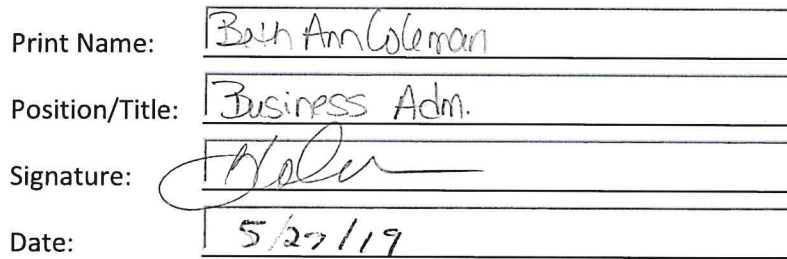 Print Name: Beth Ann Coleman
Position/Title: Business Adm.
Signature:
Date: 5/27/19